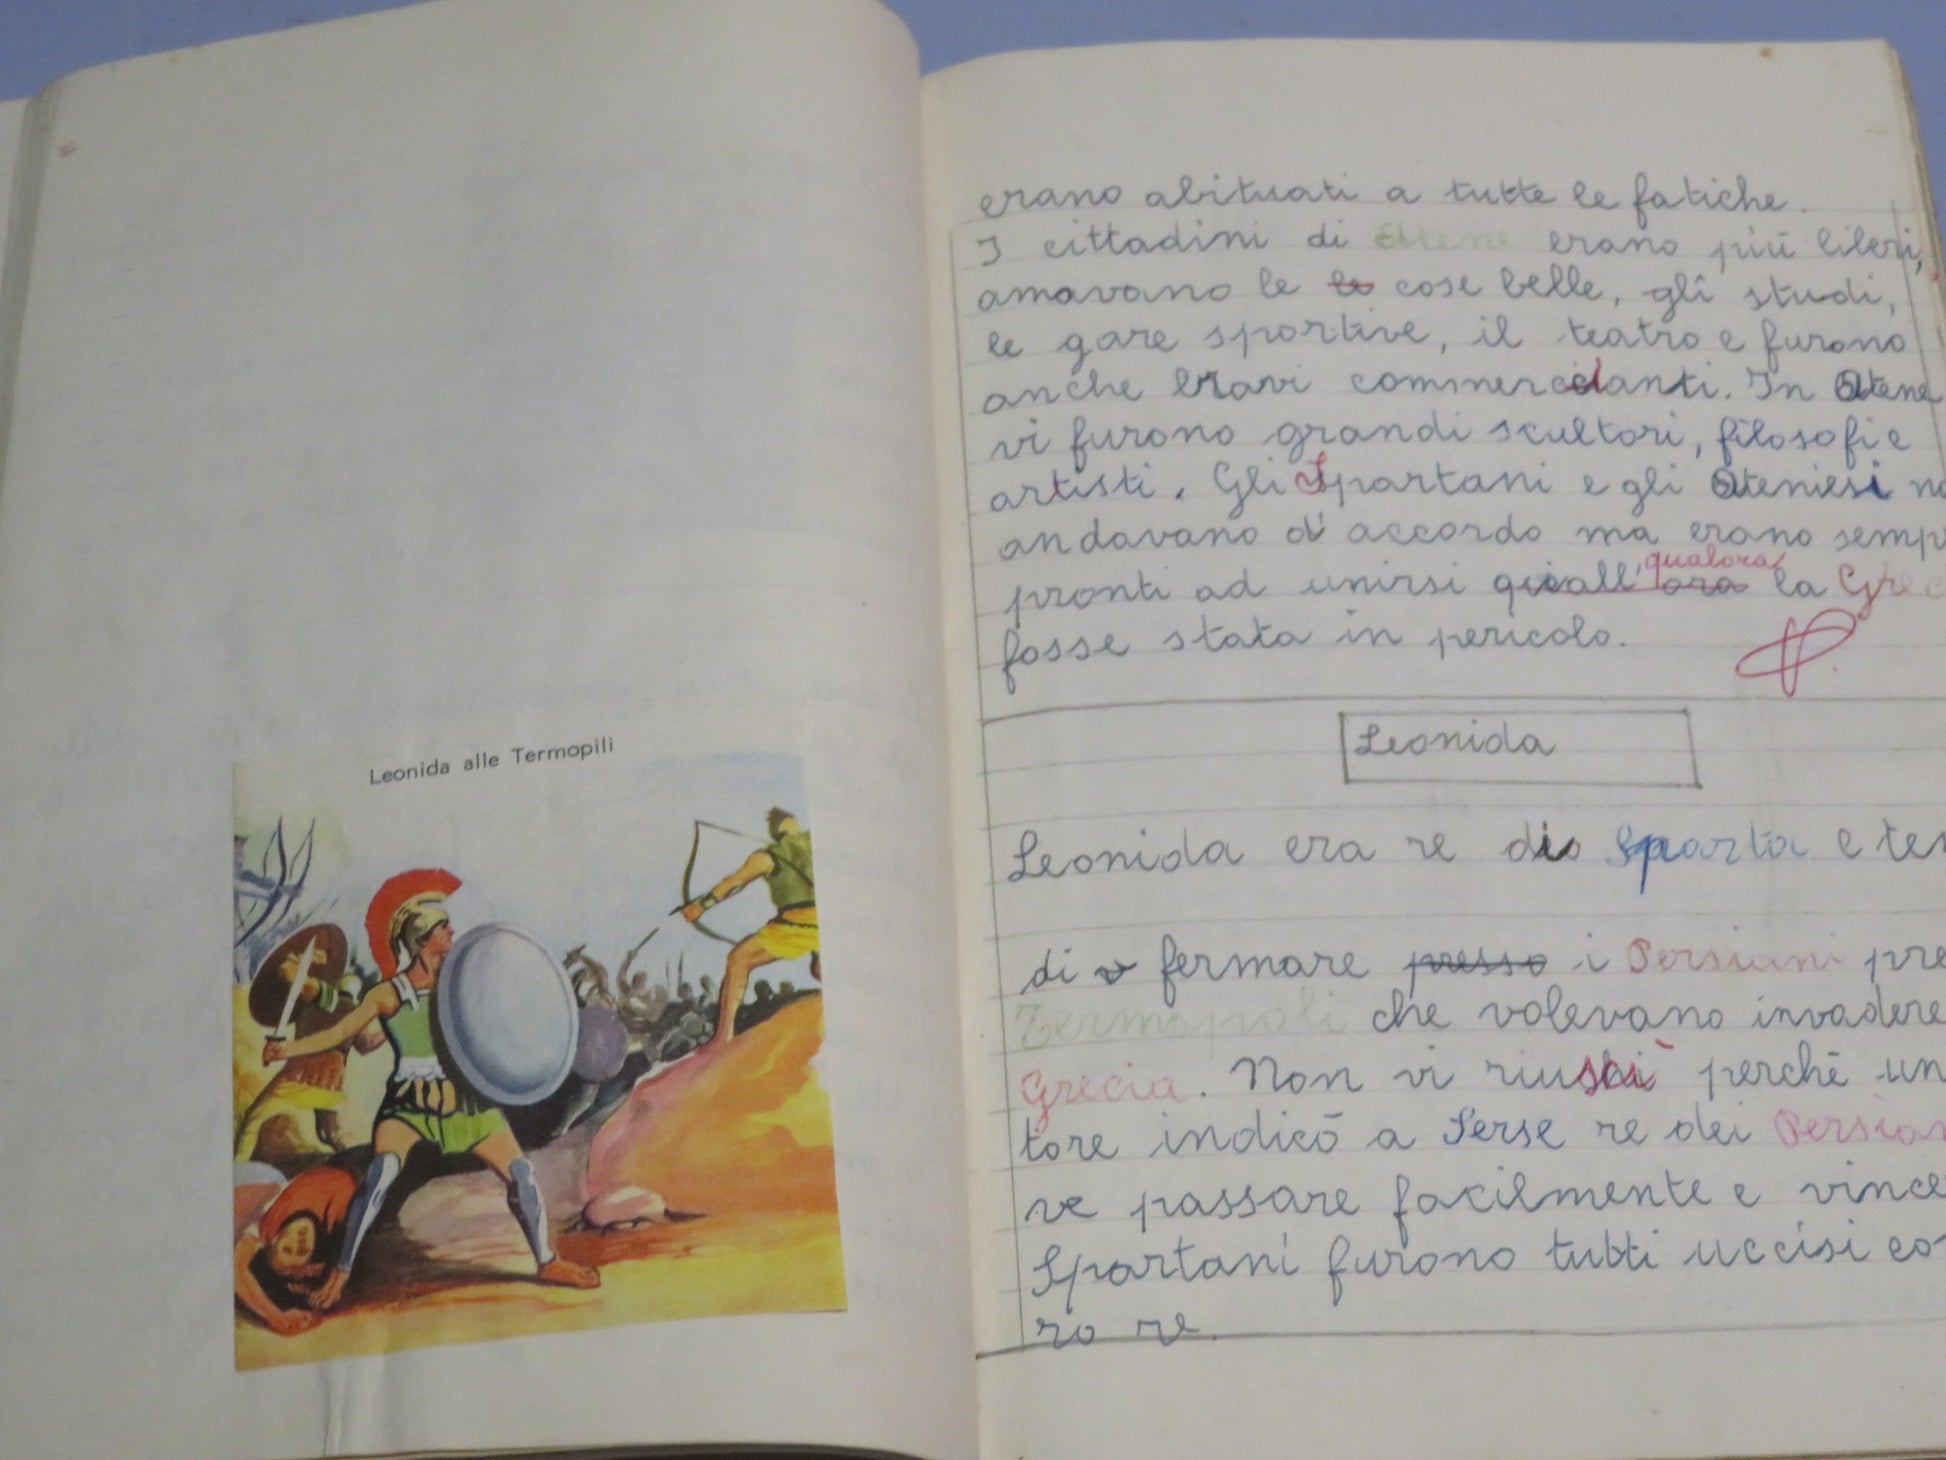 Leonida alle Termopili
erano abituati a tutte le fatiche.
I cittadini di Atene erano più liberi,
amavano le le cose belle, gli studi,
le gare sportive, il teatro e furono
anche bravi commercianti. In Atene
vi furono grandi scultori, filosofi e
artisti. Gli Spartani e gli Ateniesi no
andavano d'accordo ma erano semp
qualora
pronti ad unirsi quall'ora la Grec
fosse stata in pericolo.
Leonida
Leonida era re di Sparta e ten
di fermare presso i Persiani pre
Termopoli che volevano invadere
Grecia. Non vi riuscì perché un
tore indicò a Serse re dei Persian
ve passare facilmente e vince
Spartani furono tutti uccisi co
ro re.